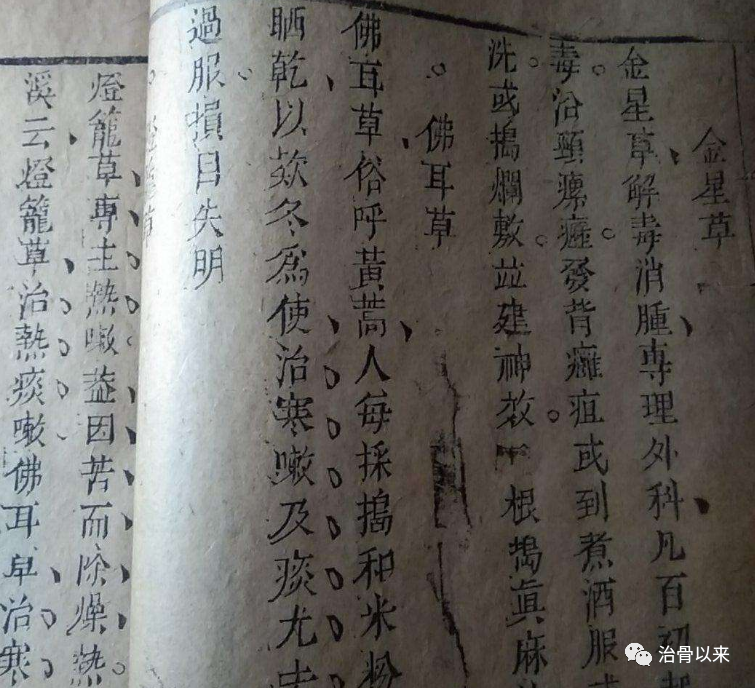 金星草
金星草解毒消腫專理外科凡百初起
毒治頸瘰癧發背癰疽或到煮酒服或
洗或搗爛敷並建神效 根搗真麻
佛耳草
佛耳草俗呼黃蒿人每採搗和米粉
晒乾以欵冬為使治寒嗽及痰尤
過服損目失明
燈籠草專主熱嗽葢因苦而除燥熱
溪云燈籠草治熱痰嗽佛耳草治寒
治骨以来